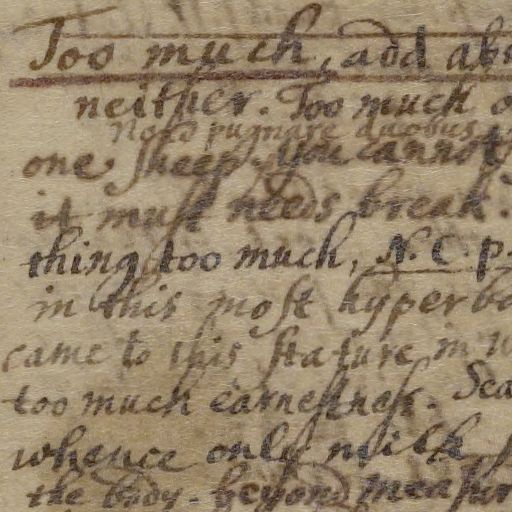 Too much, add abo
neither. Too much o
Noto pugnare duobus
one sheep. You cannot
it must needs break.
thing too much, N.C. p.
in this most hyperbo
came to this stature in
too much earnestness. Sca
whence only milk
the body. beyond measur